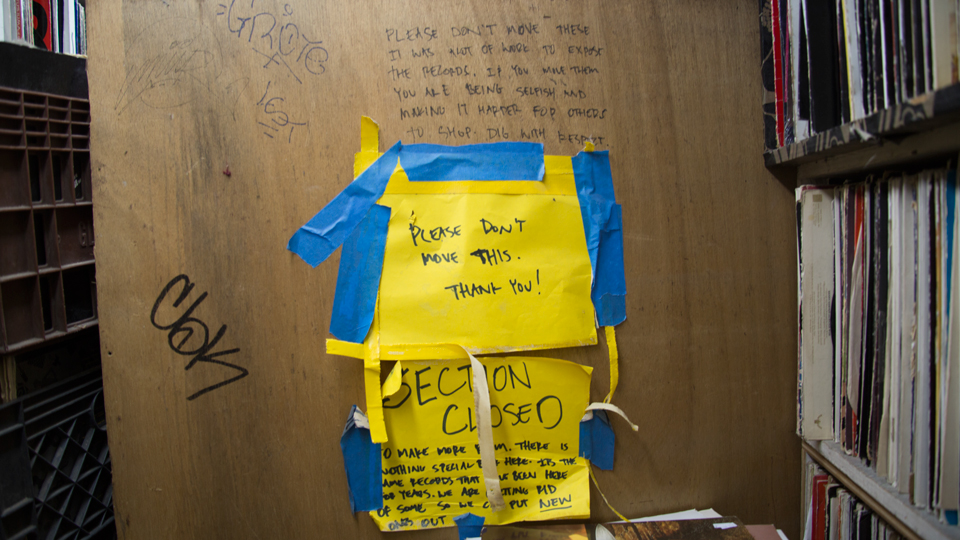 PLEASE DON'T MOVE THESE
IT WAS A LOT OF WORK TO EXPOSE
THE RECORDS. IF YOU MOVE THEM
YOU ARE BEING SELFISH AND
MAKING IT HARDER FOR OTHERS
TO SHOP. DIG WITH RESPECT
PLEASE DON'T
MOVE THIS.
THANK YOU!
SECTION
CLOSED
TO MAKE MORE ROOM. THERE IS
NOTHING SPECIAL HERE. IT'S THE
SAME RECORDS THAT HAVE BEEN HERE
FOR YEARS. WE ARE GETTING RID
OF SOME SO WE CAN PUT NEW
ONES OUT